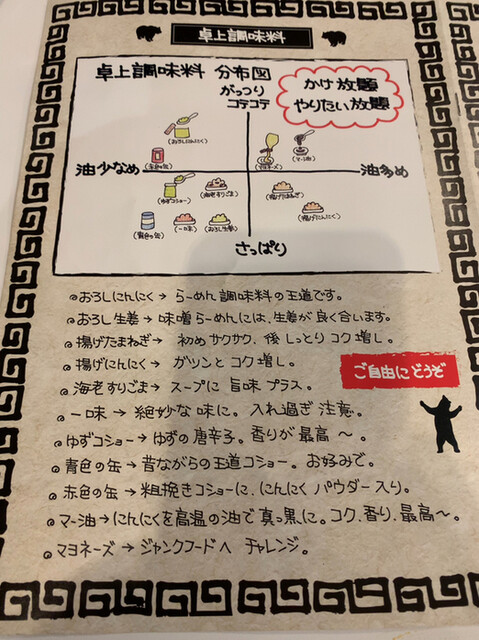 卓上調味料
卓上調味料 分布図
かけ放題
やりたい放題
がっつり
コテコテ
(おろしにんにく)
(マヨネーズ)
(マー油)
油少なめ
(赤色の缶)
油多め
(ゆずコショー)
(海老すりごま)
(揚げたまねぎ)
(青色の缶)
(一味)
(おろし生姜)
(揚げにんにく)
さっぱり
おろしにんにく→らーめん調味料の王道です。
おろし生姜→味噌らーめんには、生姜が良く合います。
揚げたまねぎ→初めサクサク、後しっとりコク増し。
揚げにんにく→ガツンとコク増し。
海老すりごま→スープに旨味プラス。
ご自由にどうぞ
一味→絶妙な味に。入れ過ぎ注意。
ゆずコショー→ゆずの唐辛子。香りが最高〜。
青色の缶→昔ながらの王道コショー。お好みで。
赤色の缶→粗挽きコショーに、にんにくパウダー入り。
マー油→にんにくを高温の油で真っ黒に。コク、香り、最高〜。
マヨネーズ→ジャンクフードへチャレンジ。